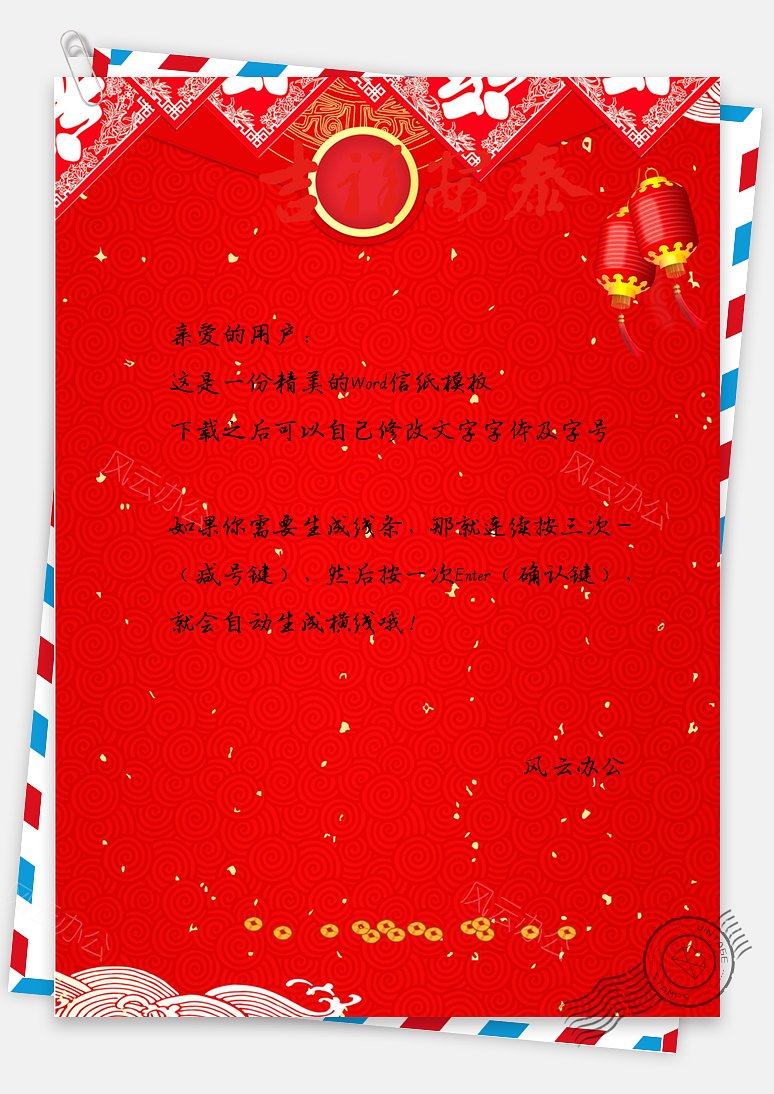 吉祥安泰
亲爱的用户：
这是一份精美的Word信纸模板
下载之后可以自己修改文字字体及字号
风云办公
风云办公
如果你需要生成线条，那就连续按三次－
（减号键），然后按一次Enter（确认键），
就会自动生成横线哦！
风云办公
风云办公
风云办公